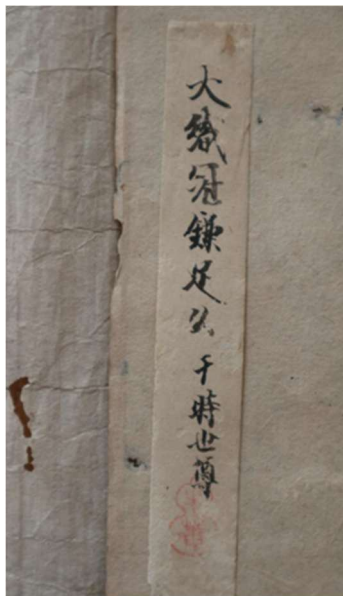 大織冠鎌足公 于時世尊